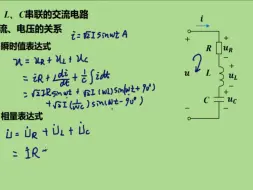 L、C串联的交流电路
流、电压的关系
i = √2 I sinωt A
瞬时值表达式
u = u_R + u_L + u_C
= iR + L di/dt + 1/C ∫ i dt
= √2 I R sinωt + √2 I (ωL) sin(ωt + 90°)
+ √2 I (1/ωC) sin(ωt - 90°)
相量表达式
U̇ = U̇_R + U̇_L + U̇_C
= İR -
i
+
R
u_R
u
L
u_L
C
u_C
-